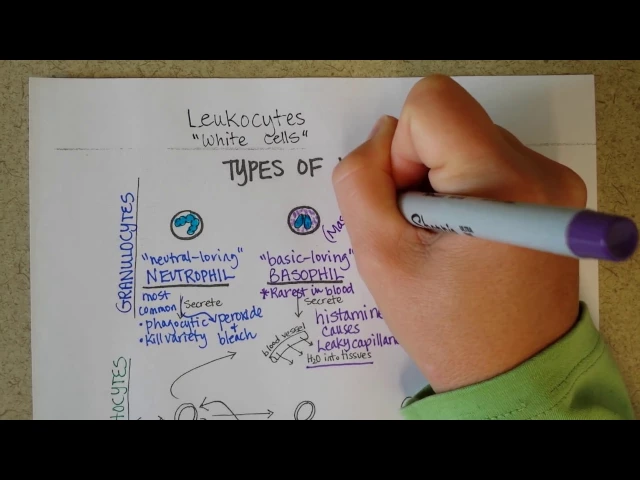 Leukocytes
"White cells"
TYPES OF
GRANULOCYTES
"neutral-loving"
NEUTROPHIL
most
common
Secrete
• phagocytic
peroxide
+
• kill variety
bleach
"basic-loving"
BASOPHIL
*Rarest in blood
Secrete
(Mas
histamine
causes
Leaky capillar
blood vessel
H₂O into tissues
OCYTES